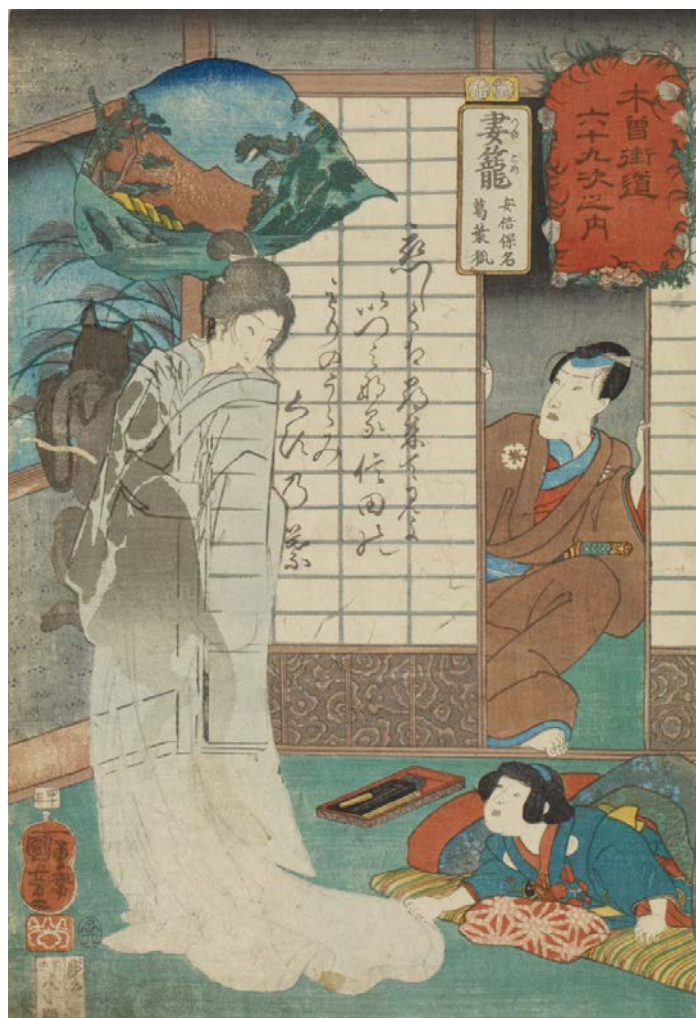 木曾街道
六十九次之内
妻籠
つま ごめ
安倍保名
葛葉狐
恋しくは尋来て見よ
いつみなる信田の
もりのうらみ
くず乃葉
一勇斎
國芳画